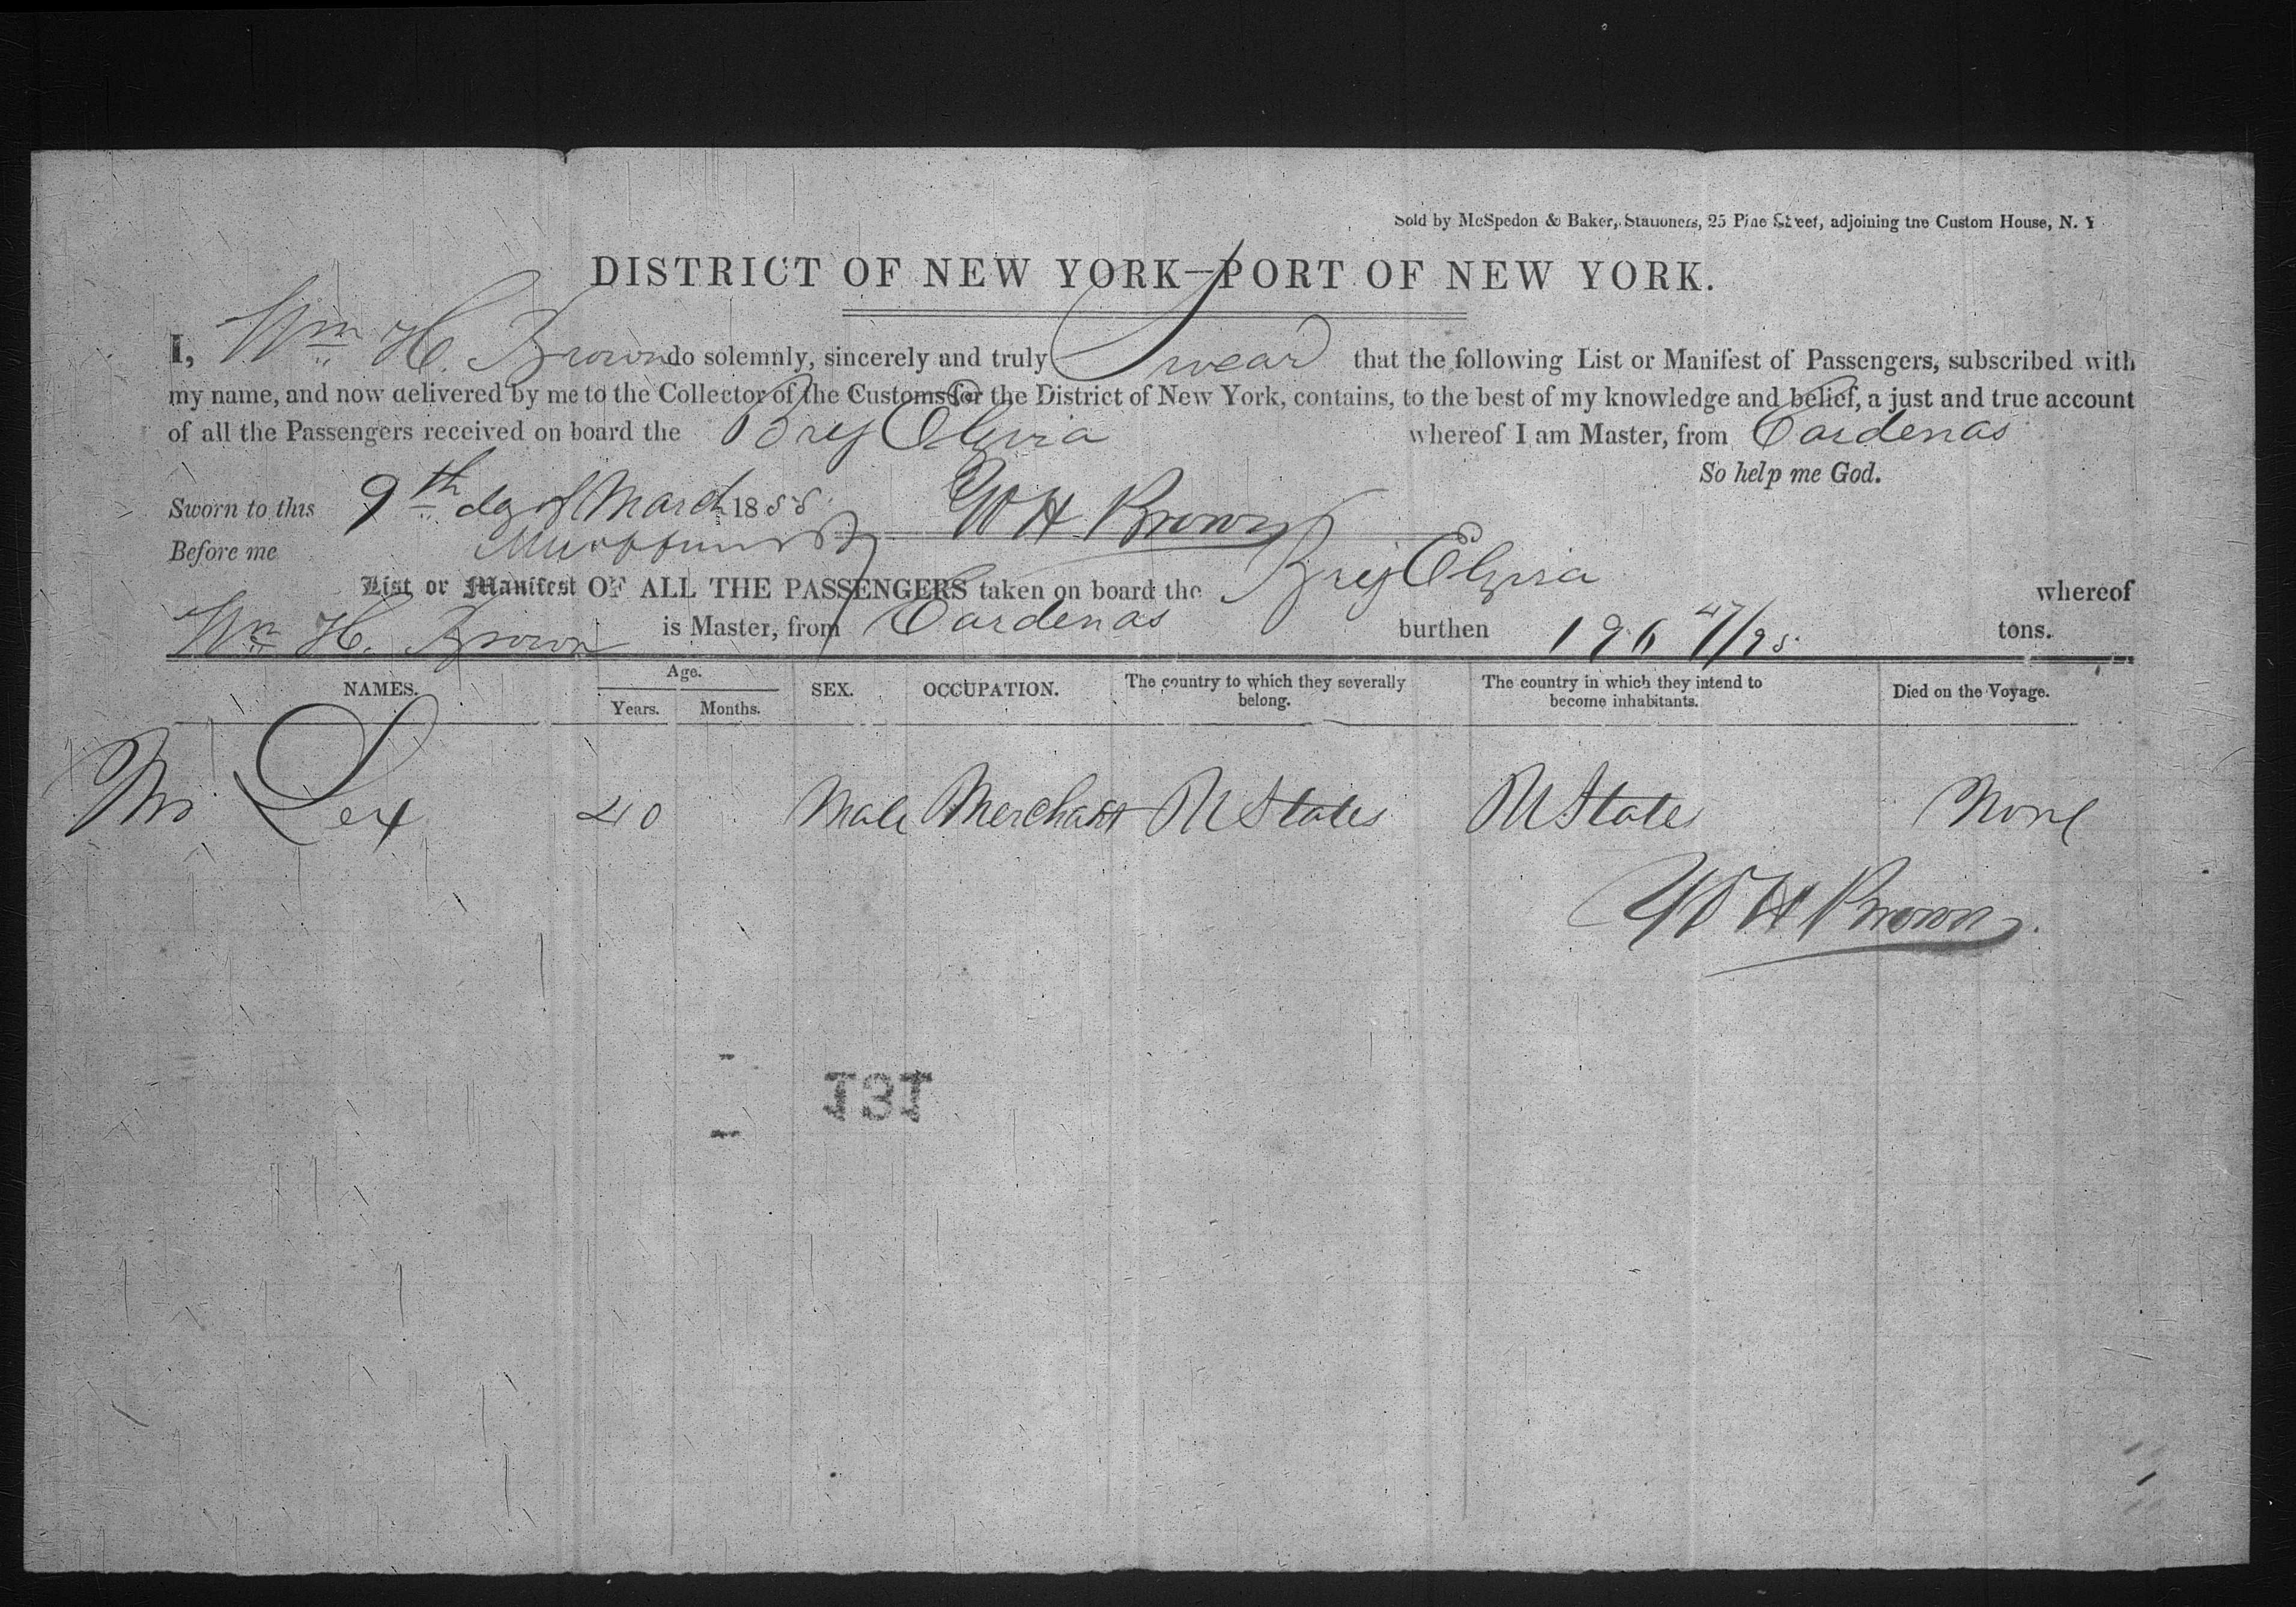 Sold by McSpedon & Baker, Stationers, 25 Pine Street, adjoining the Custom House, N. Y
DISTRICT OF NEW YORK—PORT OF NEW YORK.
I, Wm H. Brown do solemnly, sincerely and truly Swear that the following List or Manifest of Passengers, subscribed with
my name, and now delivered by me to the Collector of the Customs for the District of New York, contains, to the best of my knowledge and belief, a just and true account
of all the Passengers received on board the Brig Elvira whereof I am Master, from Cardenas
So help me God.
Sworn to this 9th day of March 1855 W H Brown
Before me
List or Manifest OF ALL THE PASSENGERS taken on board the Brig Elvira whereof
Wm H. Brown is Master, from Cardenas burthen 196 47/95 tons.
NAMES. Age. Years. Months. SEX. OCCUPATION. The country to which they severally belong. The country in which they intend to become inhabitants. Died on the Voyage.
Mr Lex 40 Male Merchant U States U States None
W H Brown
131